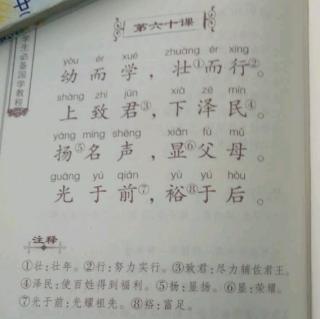 第六十课
yòu ér xué zhuàng ér xíng
幼而学，壮①而行②。
shàng zhì jūn xià zé mín
上致君③，下泽民④。
yáng míng shēng xiǎn fù mǔ
扬⑤名声，显⑥父母。
guāng yú qián yù yú hòu
光于前⑦，裕⑧于后。
注释
①壮：壮年。②行：努力实行。③致君：尽力辅佐君王。
④泽民：使百姓得到福利。⑤扬：显扬。⑥显：荣耀。
⑦光于前：光耀祖先。⑧裕：富足。
学生必备国学教程